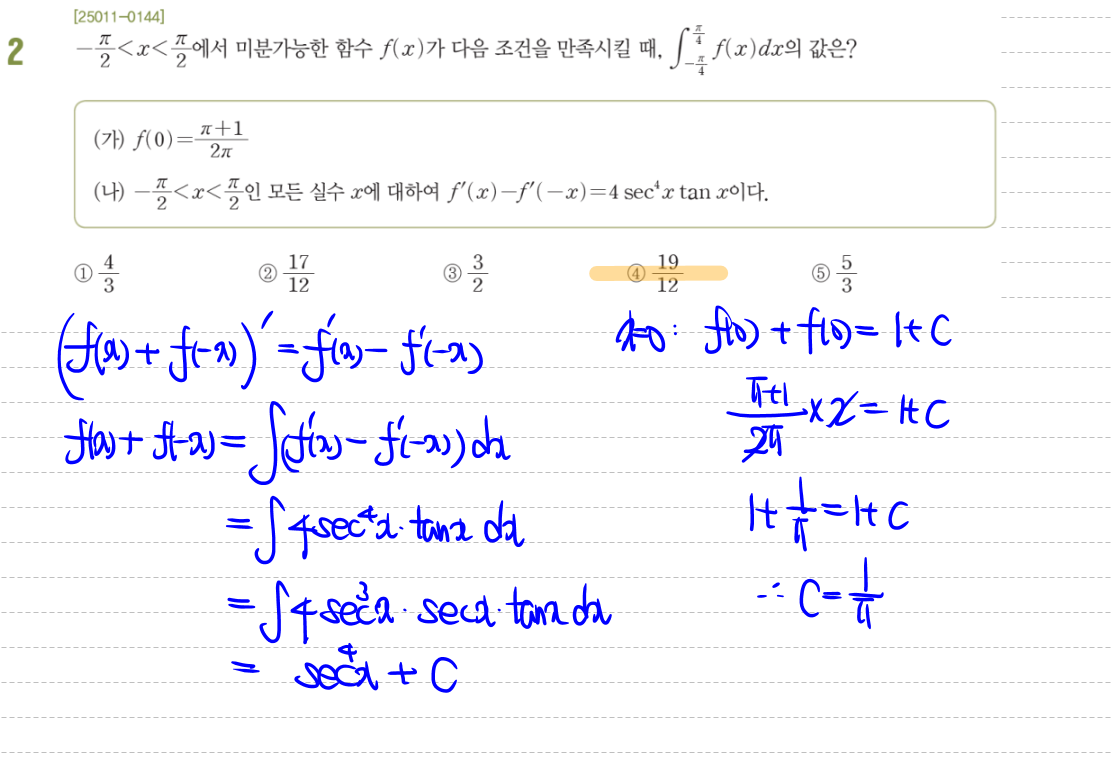 [25011-0144]
2 -π/2<x<π/2에서 미분가능한 함수 f(x)가 다음 조건을 만족시킬 때, ∫_{-π/4}^{π/4} f(x)dx의 값은?
(가) f(0)=(π+1)/(2π)
(나) -π/2<x<π/2인 모든 실수 x에 대하여 f′(x)-f′(-x)=4 sec⁴x tan x이다.
① 4/3 ② 17/12 ③ 3/2 ④ 19/12 ⑤ 5/3
(f(x)+f(-x))′=f′(x)-f′(-x)
f(x)+f(-x)=∫(f′(x)-f′(-x))dx
=∫4sec⁴x·tanx dx
=∫4sec³x·secx·tanx dx
= sec⁴x+C
x=0: f(0)+f(0)=1+C
(π+1)/(2π)×2=1+C
1+1/π=1+C
∴ C=1/π